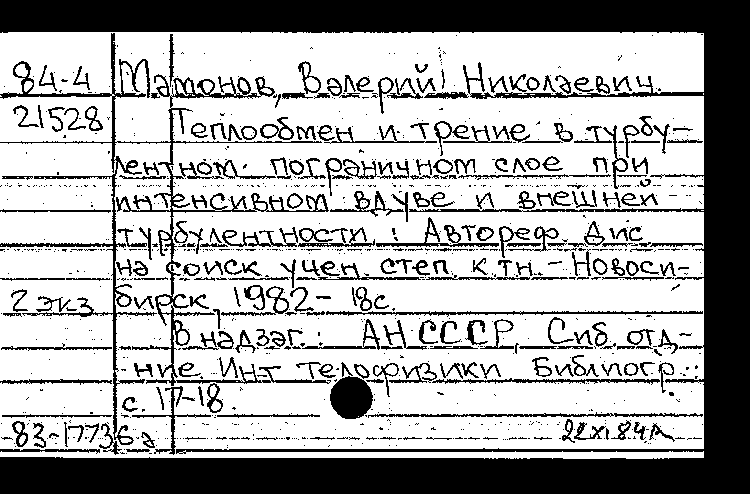 84-4 Мамонов, Валерий Николаевич.
21528 Теплообмен и трение в турбу-
лентном пограничном слое при
интенсивном вдуве и внешней
турбулентности : Автореф. Дис
на соиск учен. степ. к.тн. - Новоси-
2 экз бирск, 1982 - 18с.
В надзаг.: АН СССР, Сиб. отд-
-ние Инт телофизики Библиогр.:
с. 17-18.
83-17736а 22 XI 84